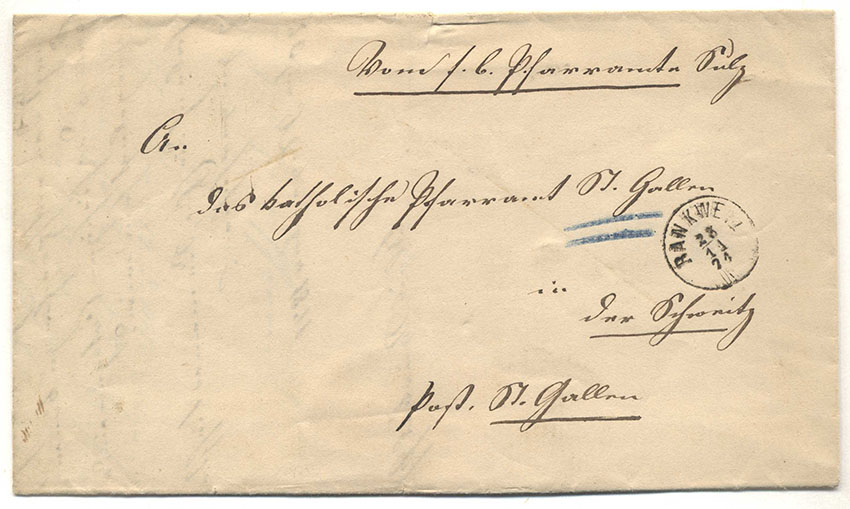 Vom f. b. Pfarramte Sulz
An
das katholische Pfarramt St. Gallen
RANKWEIL
23
11
71
in
der Schweitz
Post. St. Gallen